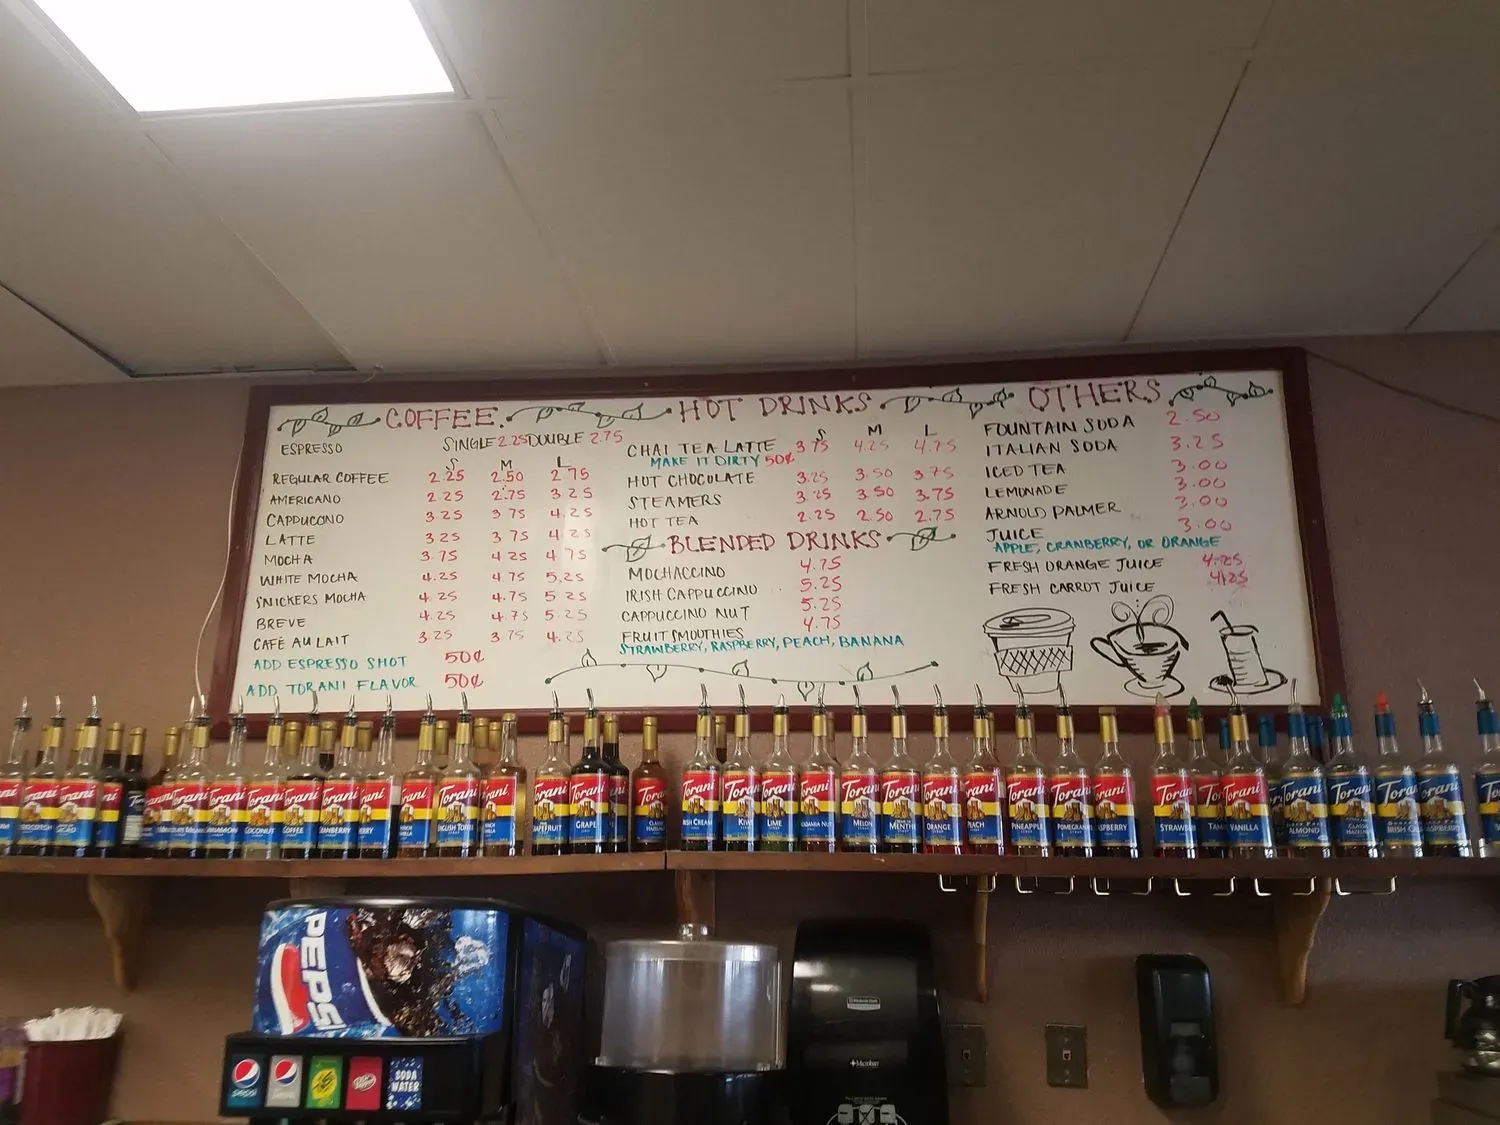 COFFEE
ESPRESSO SINGLE 2.25 DOUBLE 2.75
S M L
REGULAR COFFEE 2.25 2.50 2.75
AMERICANO 2.25 2.75 3.25
CAPPUCCINO 3.25 3.75 4.25
LATTE 3.25 3.75 4.25
MOCHA 3.75 4.25 4.75
WHITE MOCHA 4.25 4.75 5.25
SNICKERS MOCHA 4.25 4.75 5.25
BREVE 4.25 4.75 5.25
CAFÉ AU LAIT 3.25 3.75 4.25
ADD ESPRESSO SHOT 50¢
ADD TORANI FLAVOR 50¢
HOT DRINKS
S M L
CHAI TEA LATTE 3.75 4.25 4.75
MAKE IT DIRTY 50¢
HOT CHOCOLATE 3.25 3.50 3.75
STEAMERS 3.25 3.50 3.75
HOT TEA 2.25 2.50 2.75
BLENDED DRINKS
MOCHACCINO 4.75
IRISH CAPPUCCINO 5.25
CAPPUCCINO NUT 5.25
FRUIT SMOOTHIES 4.75
STRAWBERRY, RASPBERRY, PEACH, BANANA
OTHERS
FOUNTAIN SODA 2.50
ITALIAN SODA 3.25
ICED TEA 3.00
LEMONADE 3.00
ARNOLD PALMER 3.00
JUICE 3.00
APPLE, CRANBERRY, OR ORANGE
FRESH ORANGE JUICE 4.25
FRESH CARROT JUICE 4.25
Torani
COCONUT
Torani
COFFEE
Torani
ENGLISH TOFFEE
Torani
GRAPE
Torani
KIWI
Torani
LIME
Torani
MELON
Torani
MENTHE
Torani
ORANGE
Torani
PINEAPPLE
Torani
POMEGRANATE
Torani
VANILLA
Torani
ALMOND
Torani
CLASSIC HAZELNUT
PEPSI
pepsi
SODA WATER